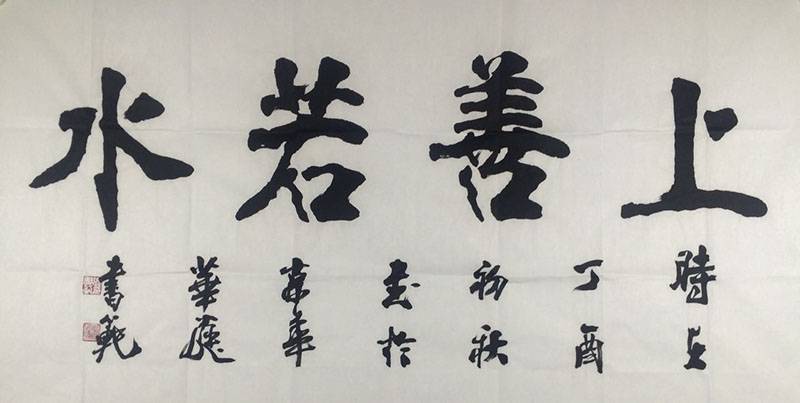 上善若水
時在
丁酉
初秋
書於
京華
華
書範